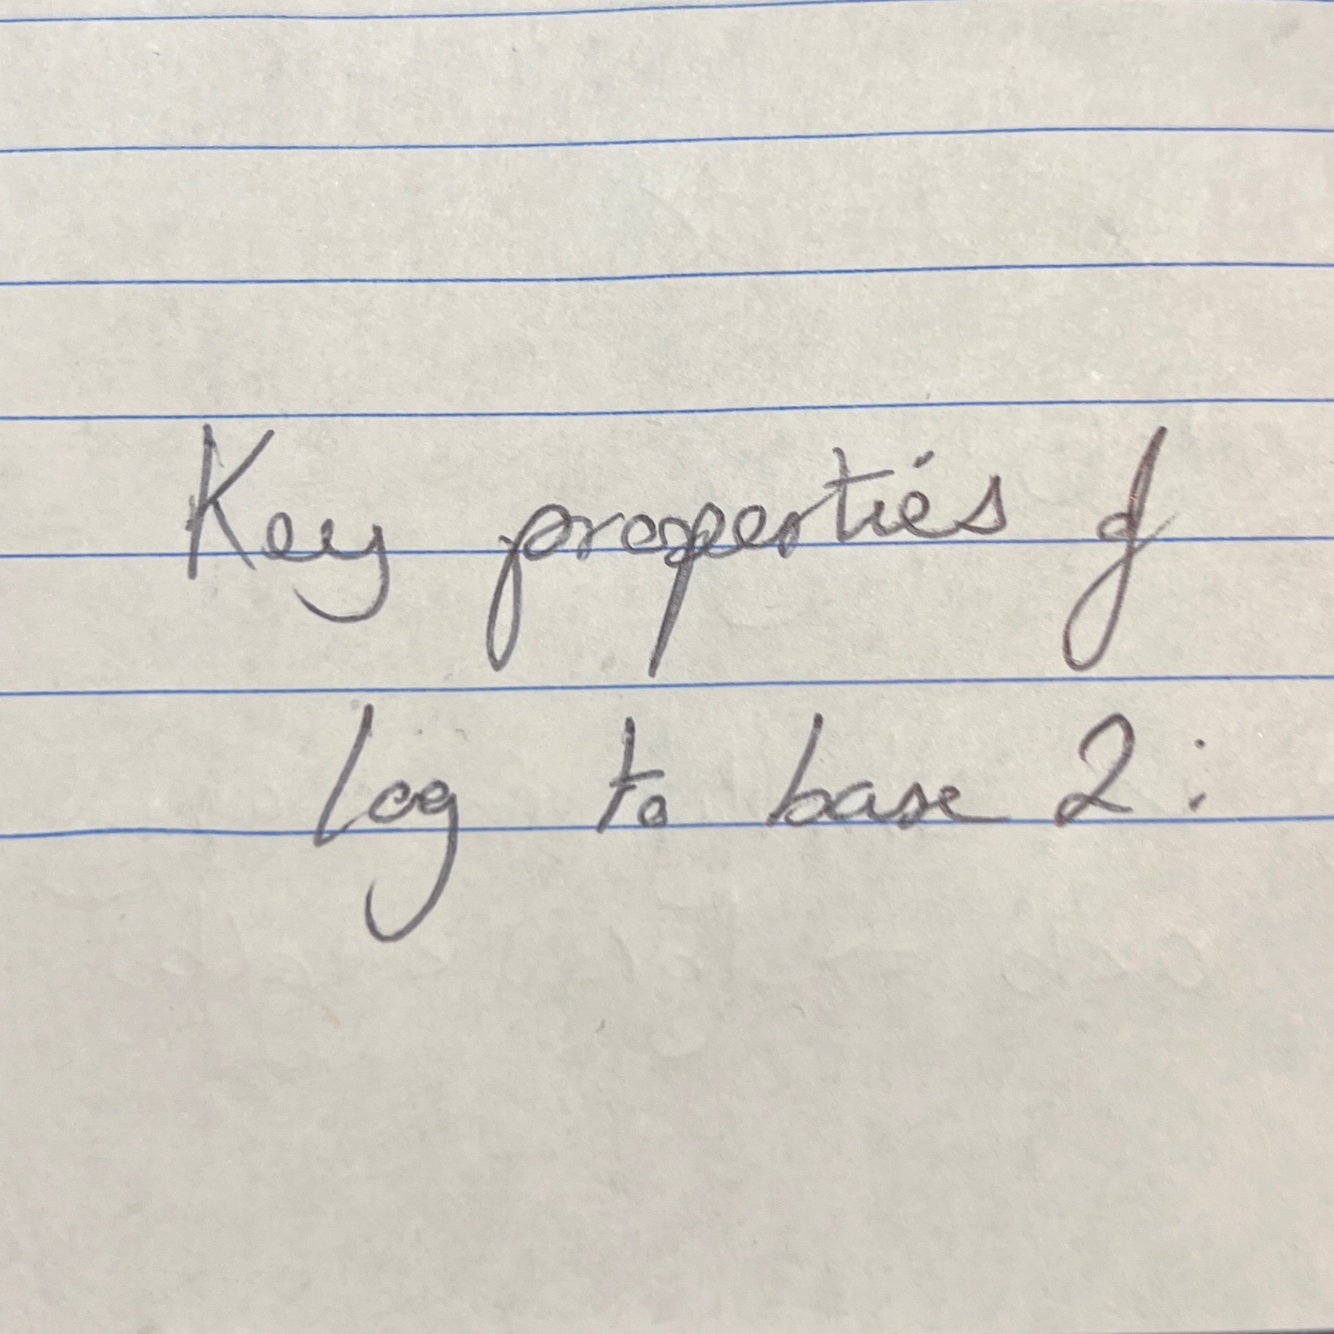 Key properties of
Log to base 2: